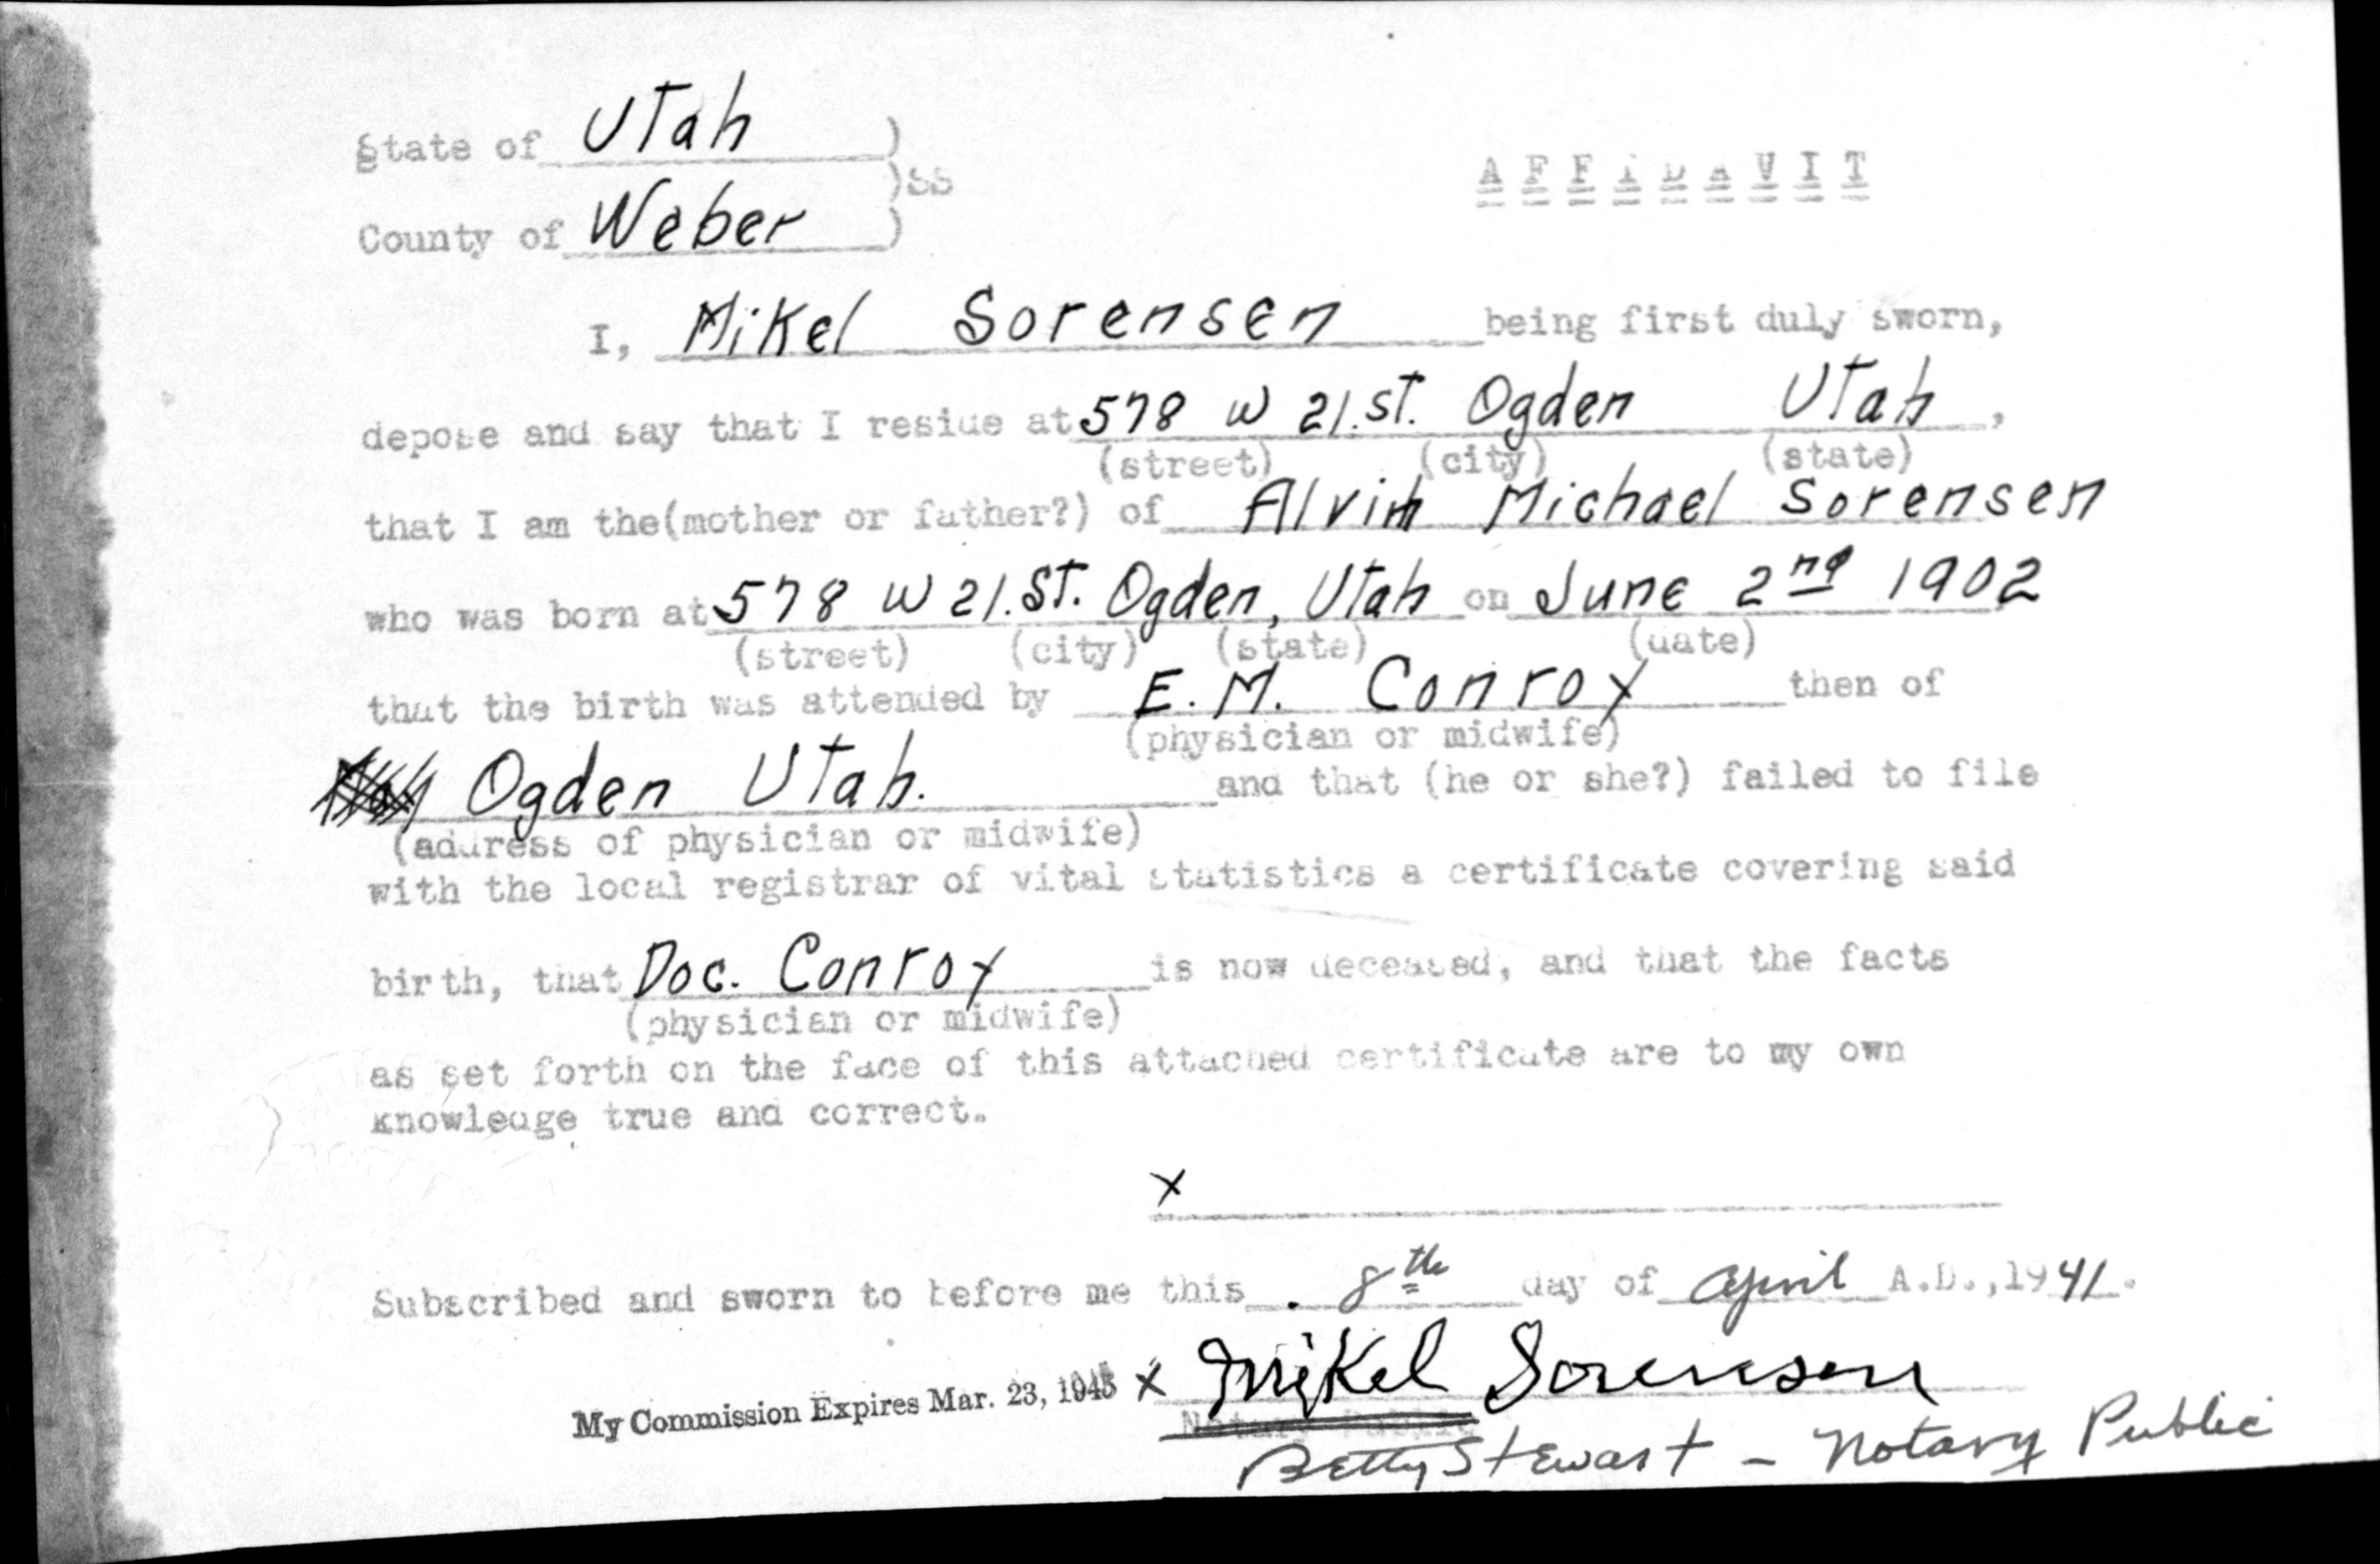 State of Utah )
)SS
AFFIDAVIT
County of Weber )
I, Mikel Sorensen being first duly sworn,
depose and say that I reside at 578 W 21.st. Ogden Utah,
(street) (city) (state)
that I am the(mother or father?) of Alvin Michael Sorensen
who was born at 578 W 21.st. Ogden, Utah on June 2nd 1902
(street) (city) (state) (date)
that the birth was attended by E. M. Conroy then of
(physician or midwife)
Ogden Utah. and that (he or she?) failed to file
(address of physician or midwife)
with the local registrar of vital statistics a certificate covering said
birth, that Doc. Conroy is now deceased, and that the facts
(physician or midwife)
as set forth on the face of this attached certificate are to my own
knowledge true and correct.
x
Subscribed and sworn to before me this 8th day of April A.D.,1941.
My Commission Expires Mar. 23, 1945 x Mikel Sorensen
Notary Public
Betty Stewart - Notary Public